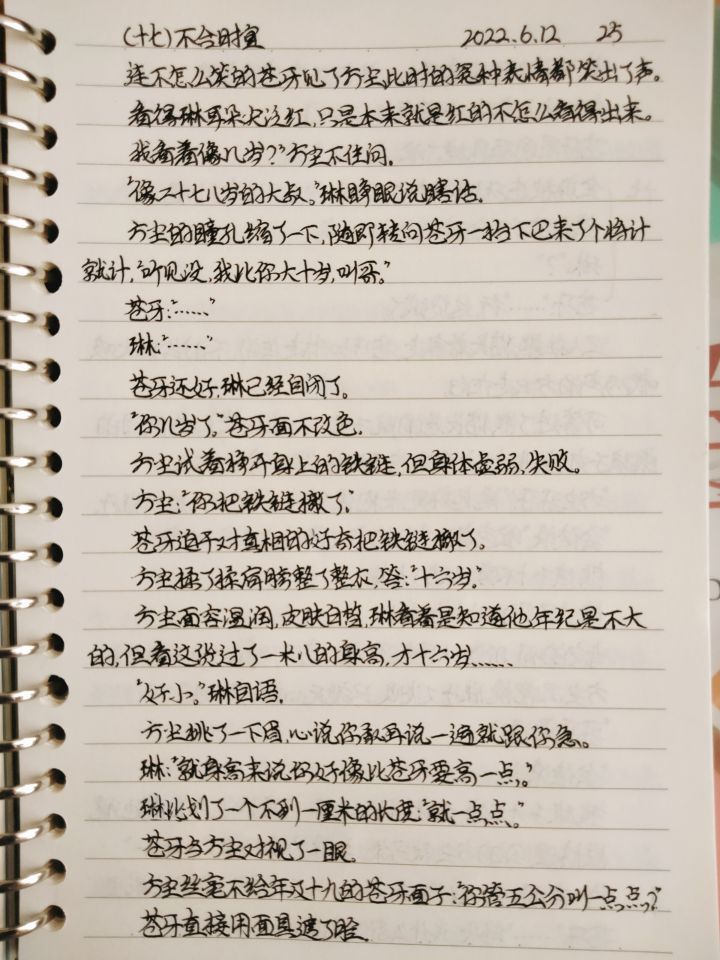 (十七)不合时宜 2022.6.12 25
连不怎么笑的苍牙见了方虫此时的冤种表情都笑出了声。
看得琳耳朵尖泛红,只是本来就是红的不怎么看得出来。
我看着像几岁?"方虫不住问.
"像二十七八岁的大叔。"琳睁眼说瞎话.
方虫的瞳孔缩了一下,随即转向苍牙一抬下巴来了个将计
就计,"听见没,我比你大十岁,叫哥。"
苍牙:"……"
琳:"……"
苍牙还好,琳已经自闭了。
"你几岁了。"苍牙面不改色.
方虫试着挣开身上的铁链,但身体虚弱,失败。
方虫:"你把铁链撤了".
苍牙迫于对真相的好奇把铁链撤了。
方虫揉了揉肩膀整了整衣,答:"十六岁."
方虫面容温润,皮肤白皙,琳看着是知道他年纪是不大
的,但看这说过了一米八的身高,才十六岁……
"好小。"琳自语.
方虫挑了一下眉,心说你敢再说一遍就跟你急。
琳:"就身高来说你好像比苍牙要高一点。"
琳比划了一个不到一厘米的长度:"就一点点。"
苍牙与方虫对视了一眼。
方虫丝毫不给年及十九的苍牙面子:"你管五公分叫一点点?"
苍牙直接用面具遮了脸.